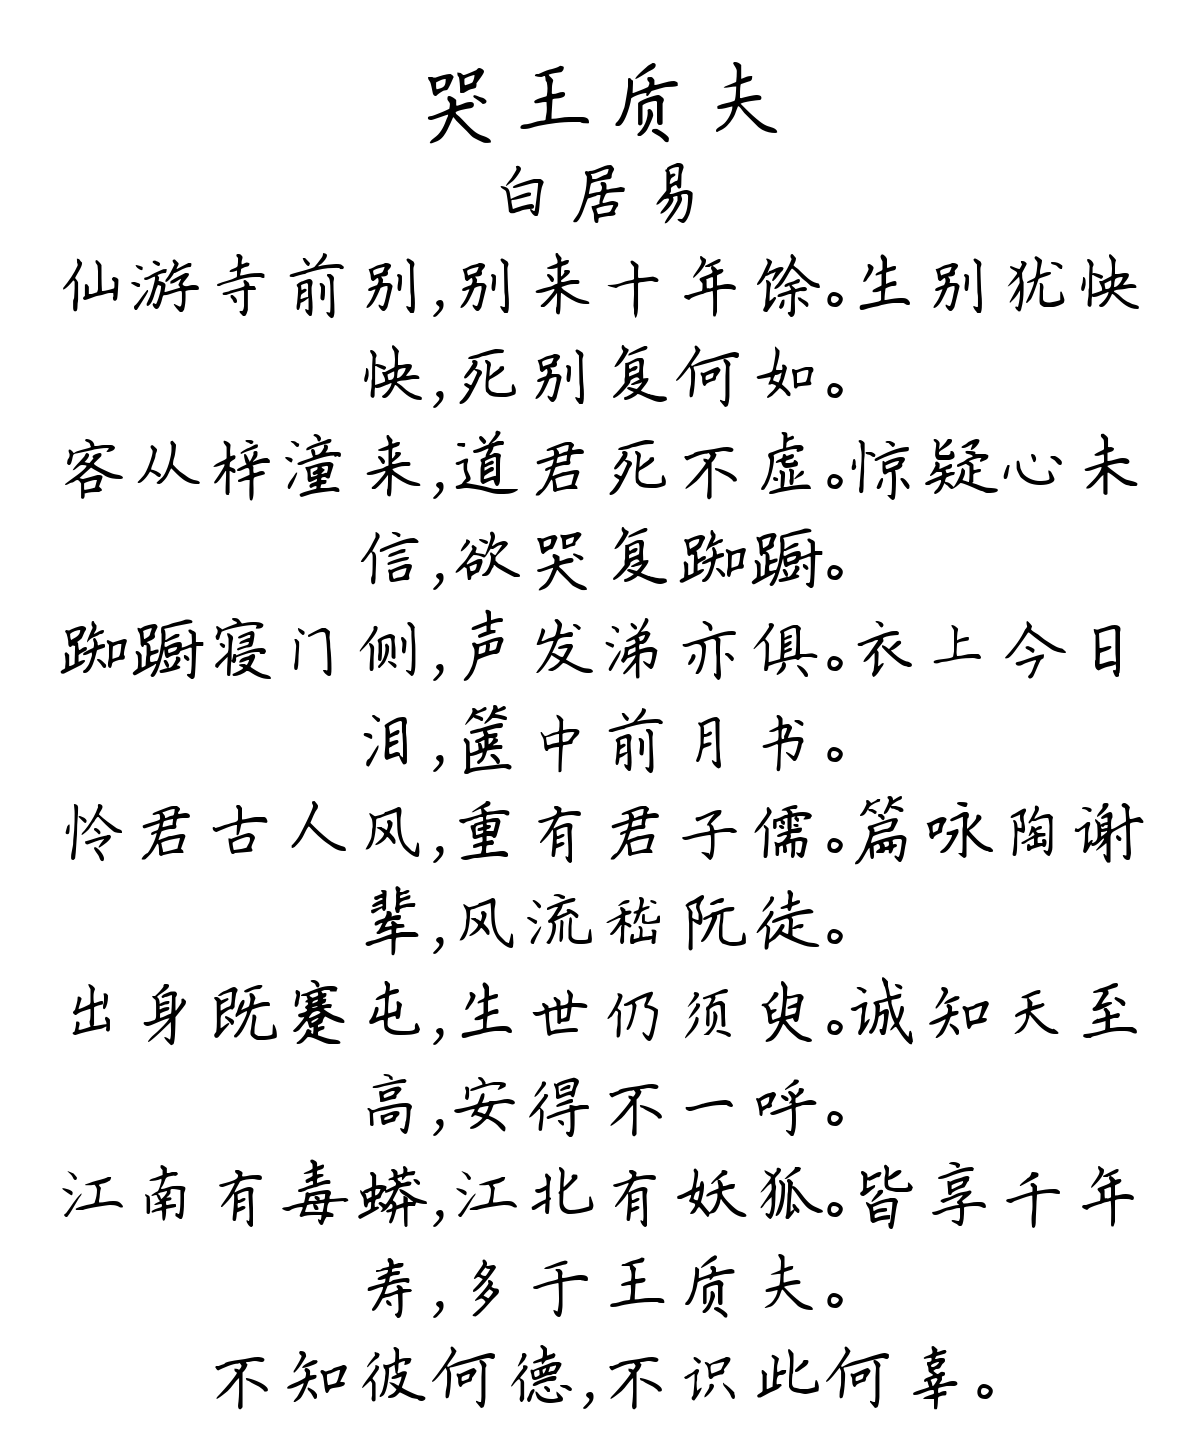 哭王质夫
白居易
仙游寺前别,别来十年馀。生别犹怏
怏,死别复何如。
客从梓潼来,道君死不虚。惊疑心未
信,欲哭复踟蹰。
踟蹰寝门侧,声发涕亦俱。衣上今日
泪,箧中前月书。
怜君古人风,重有君子儒。篇咏陶谢
辈,风流嵇阮徒。
出身既蹇屯,生世仍须臾。诚知天至
高,安得不一呼。
江南有毒蟒,江北有妖狐。皆享千年
寿,多于王质夫。
不知彼何德,不识此何辜。